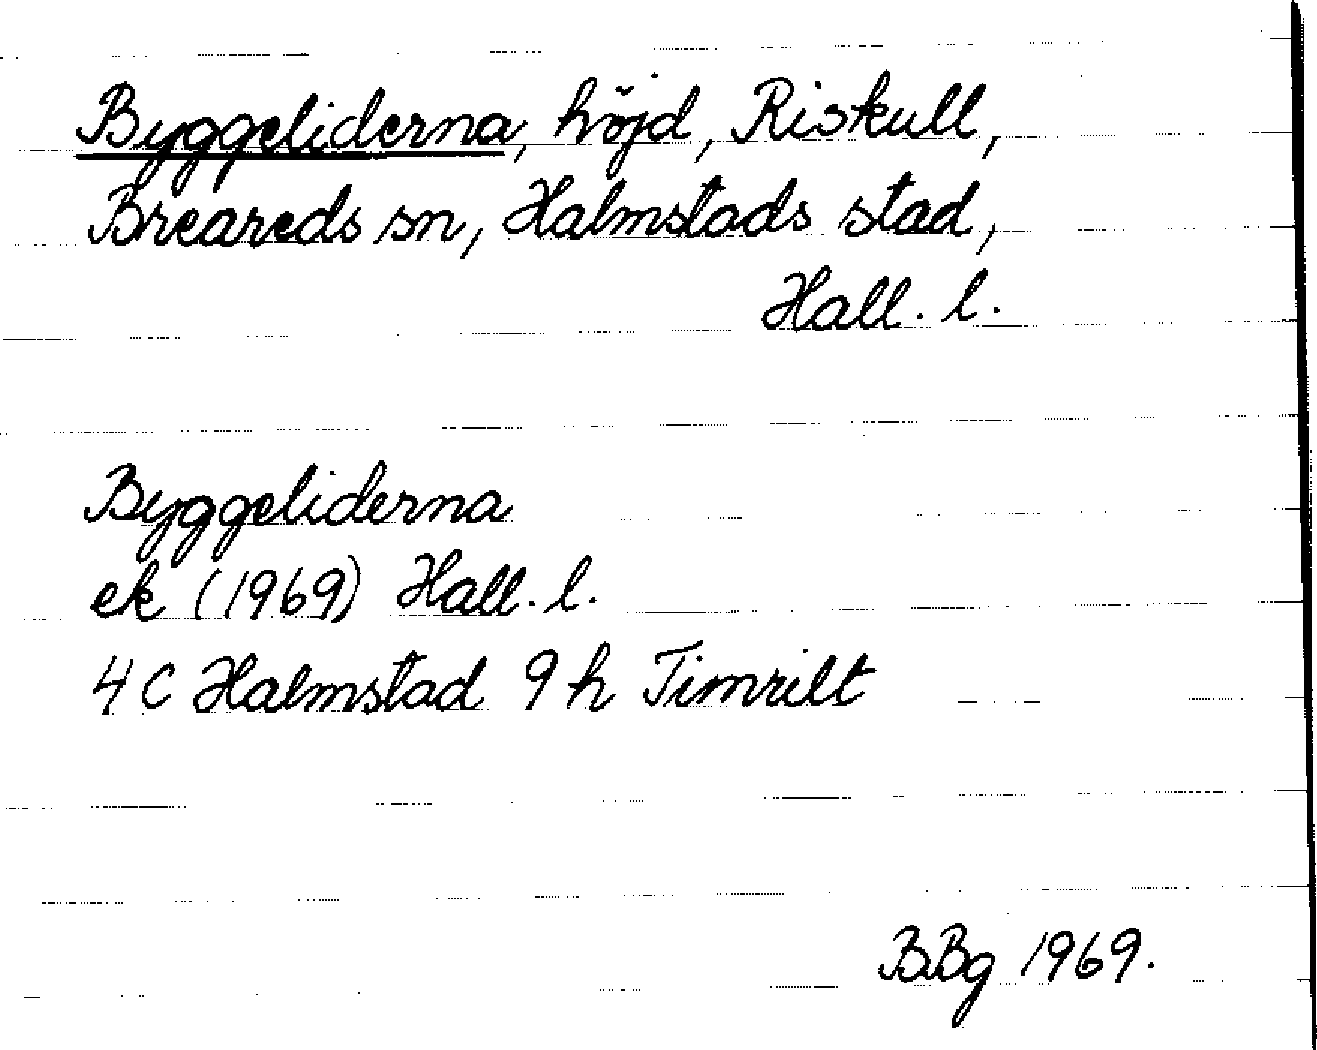 Byggeliderna, höjd, Riskull,
Breareds sn, Halmstads stad,
Hall. l.
Byggeliderna
ek (1969) Hall. l.
4 C Halmstad 9 h Timrilt
BBg 1969.